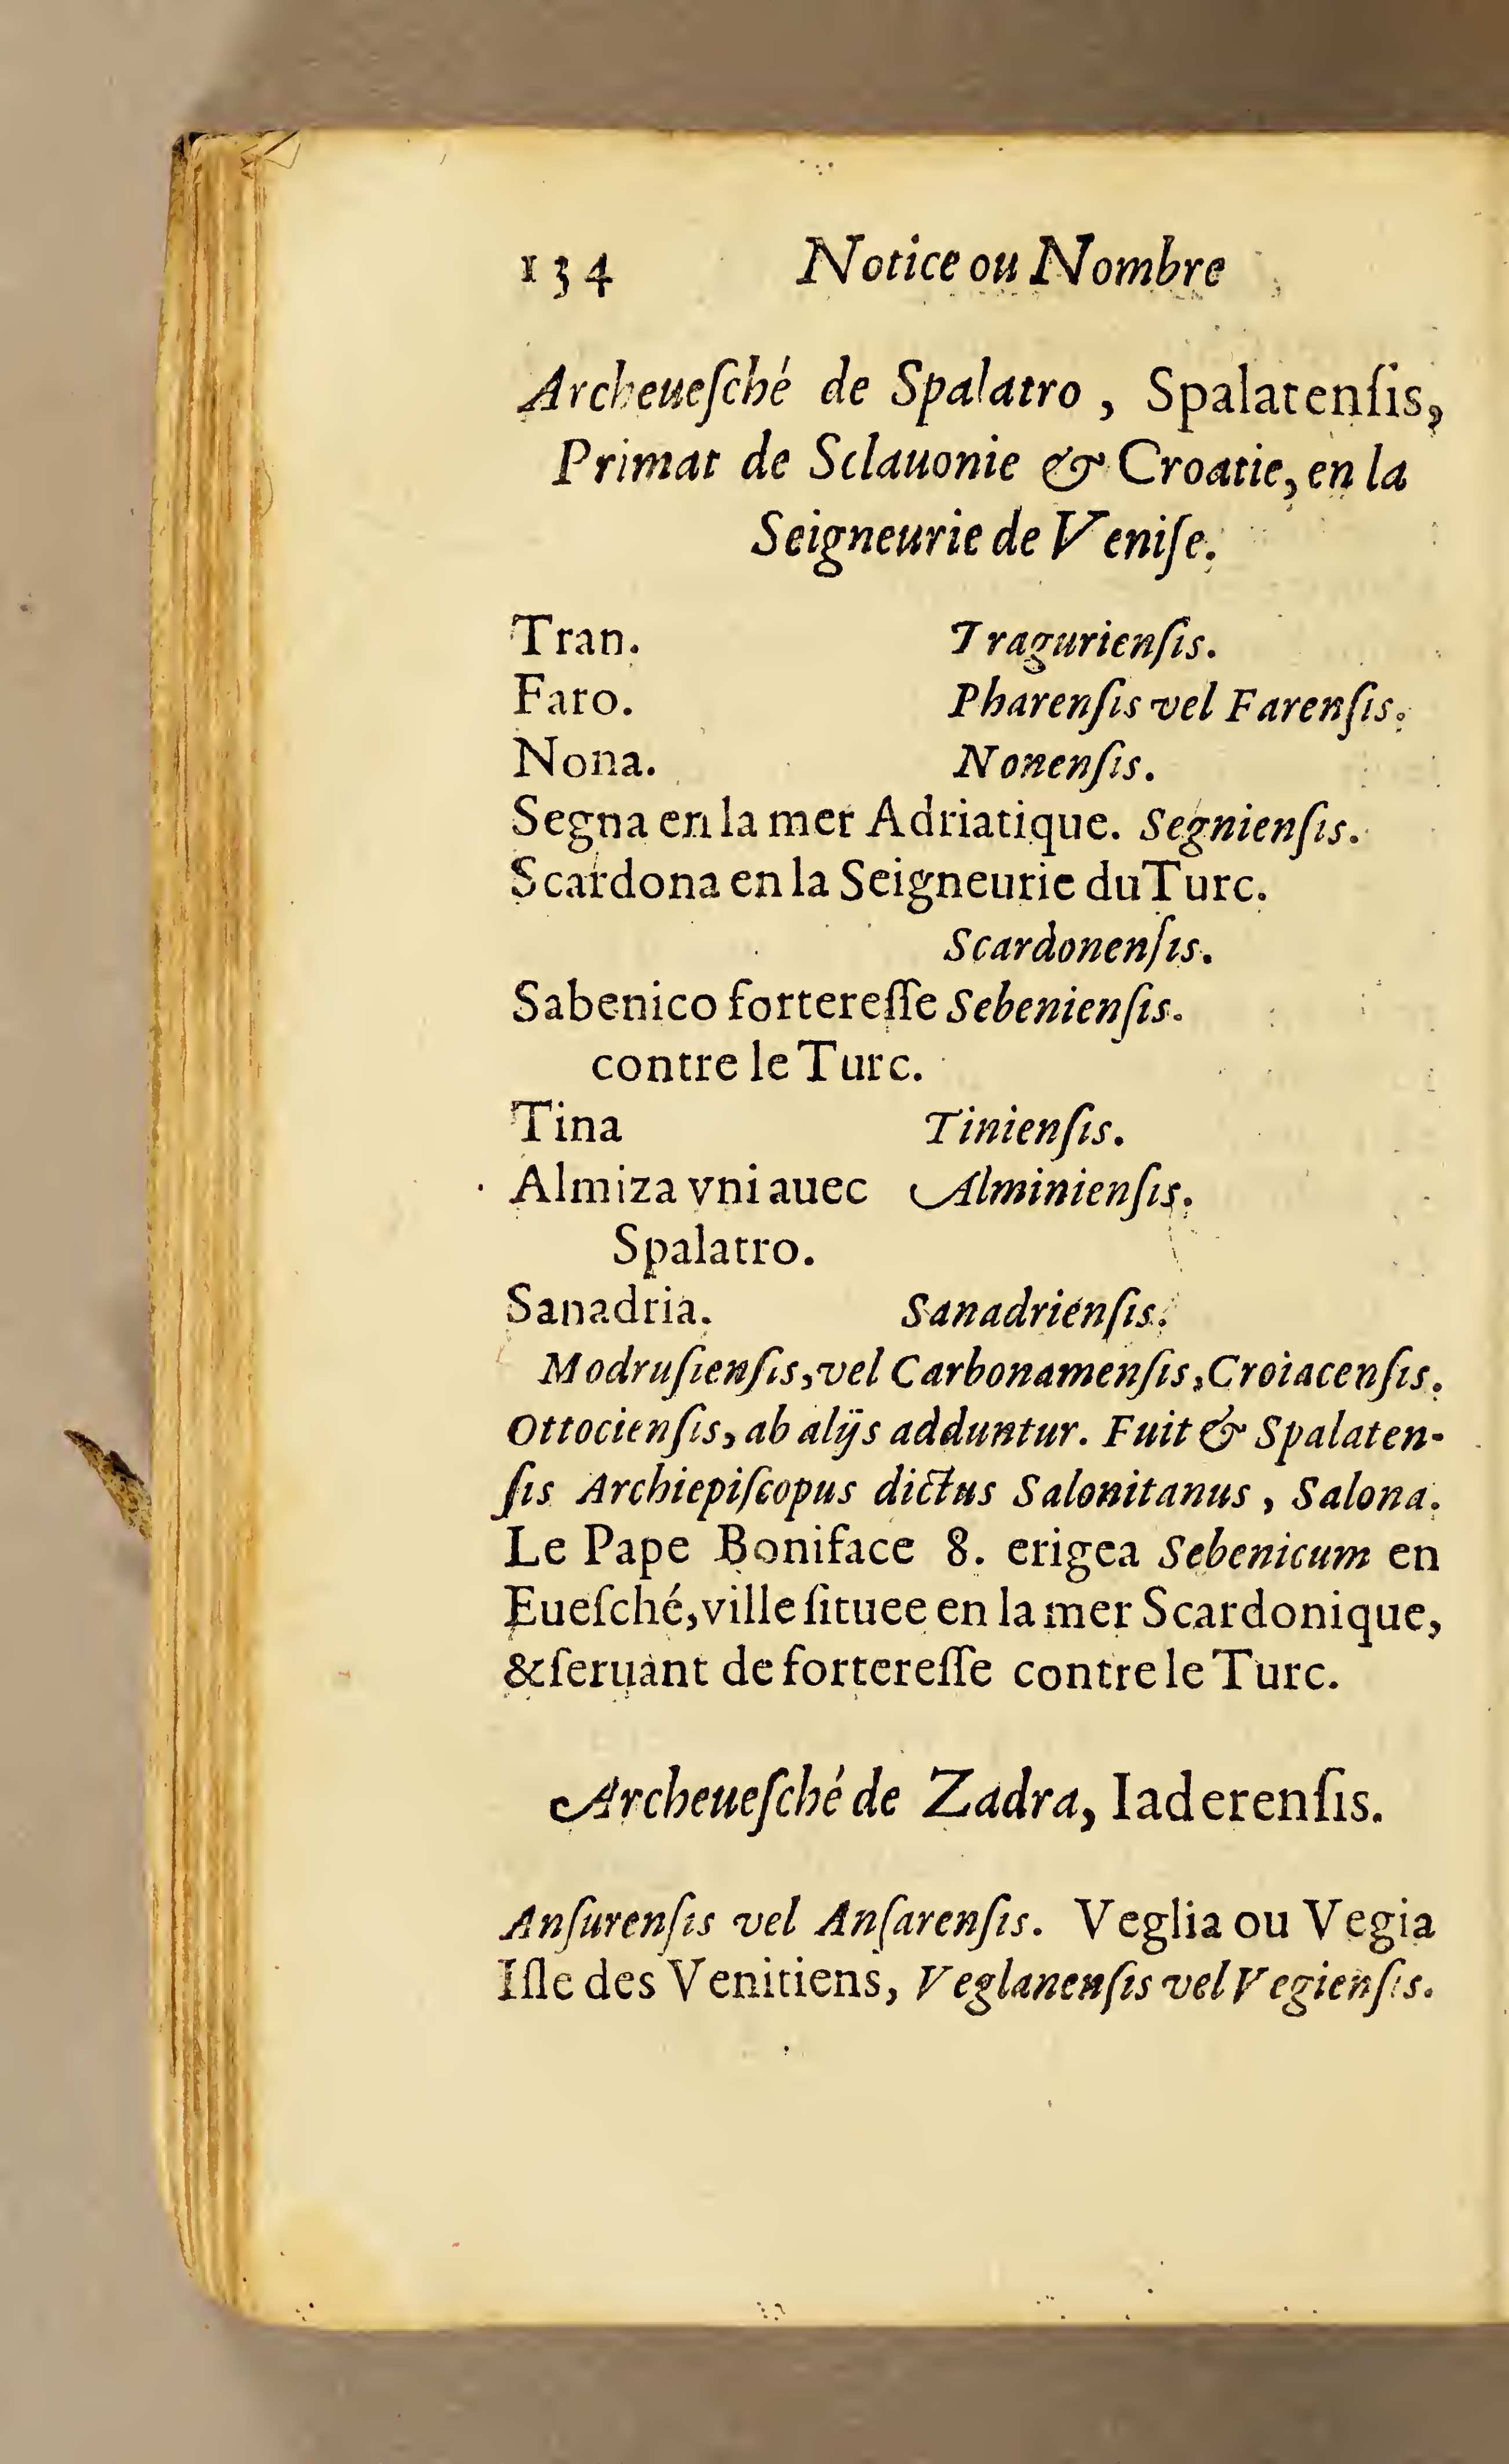 134 Notice ou Nombre
Archeueſché de Spalatro, Spalatenſis,
Primat de Sclauonie & Croatie, en la
Seigneurie de Veniſe.
Tran. Tragurienſis.
Faro. Pharenſis vel Farenſis.
Nona. Nonenſis.
Segna en la mer Adriatique. Segnienſis.
Scardona en la Seigneurie du Turc.
Scardonenſis.
Sabenico fortereſſe Sebenienſis.
contre le Turc.
Tina Tinienſis.
Almiza vni auec Alminienſis.
Spalatro.
Sanadria. Sanadrienſis.
Modruſienſis, vel Carbonamenſis, Croiacenſis.
Ottocienſis, ab alijs adduntur. Fuit & Spalaten-
ſis Archiepiſcopus dictus Salonitanus, Salona.
Le Pape Boniface 8. erigea Sebenicum en
Eueſché, ville ſituee en la mer Scardonique,
& ſeruant de fortereſſe contre le Turc.
Archeueſché de Zadra, Iaderenſis.
Anſurenſis vel Anſarenſis. Veglia ou Vegia
Iſle des Venitiens, Veglanenſis vel Vegienſis.